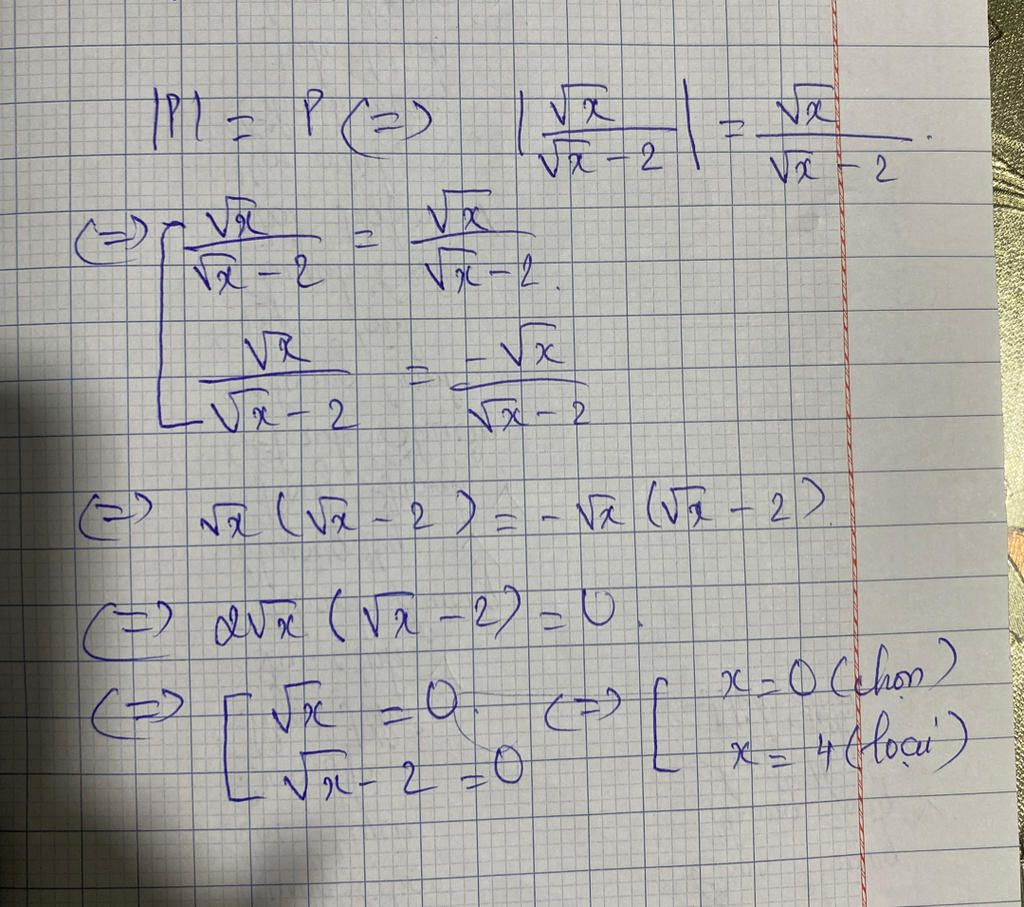 |P| = P (=) |√x / (√x - 2)| = √x / (√x - 2).
(=) [ √x / (√x - 2) = √x / (√x - 2).
√x / (√x - 2) = -√x / (√x - 2)
(=) √x (√x - 2) = - √x (√x - 2).
(=) 2√x (√x - 2) = 0.
(=) [ √x = 0 (=) [ x = 0 (chọn)
√x - 2 = 0 x = 4 (loại)